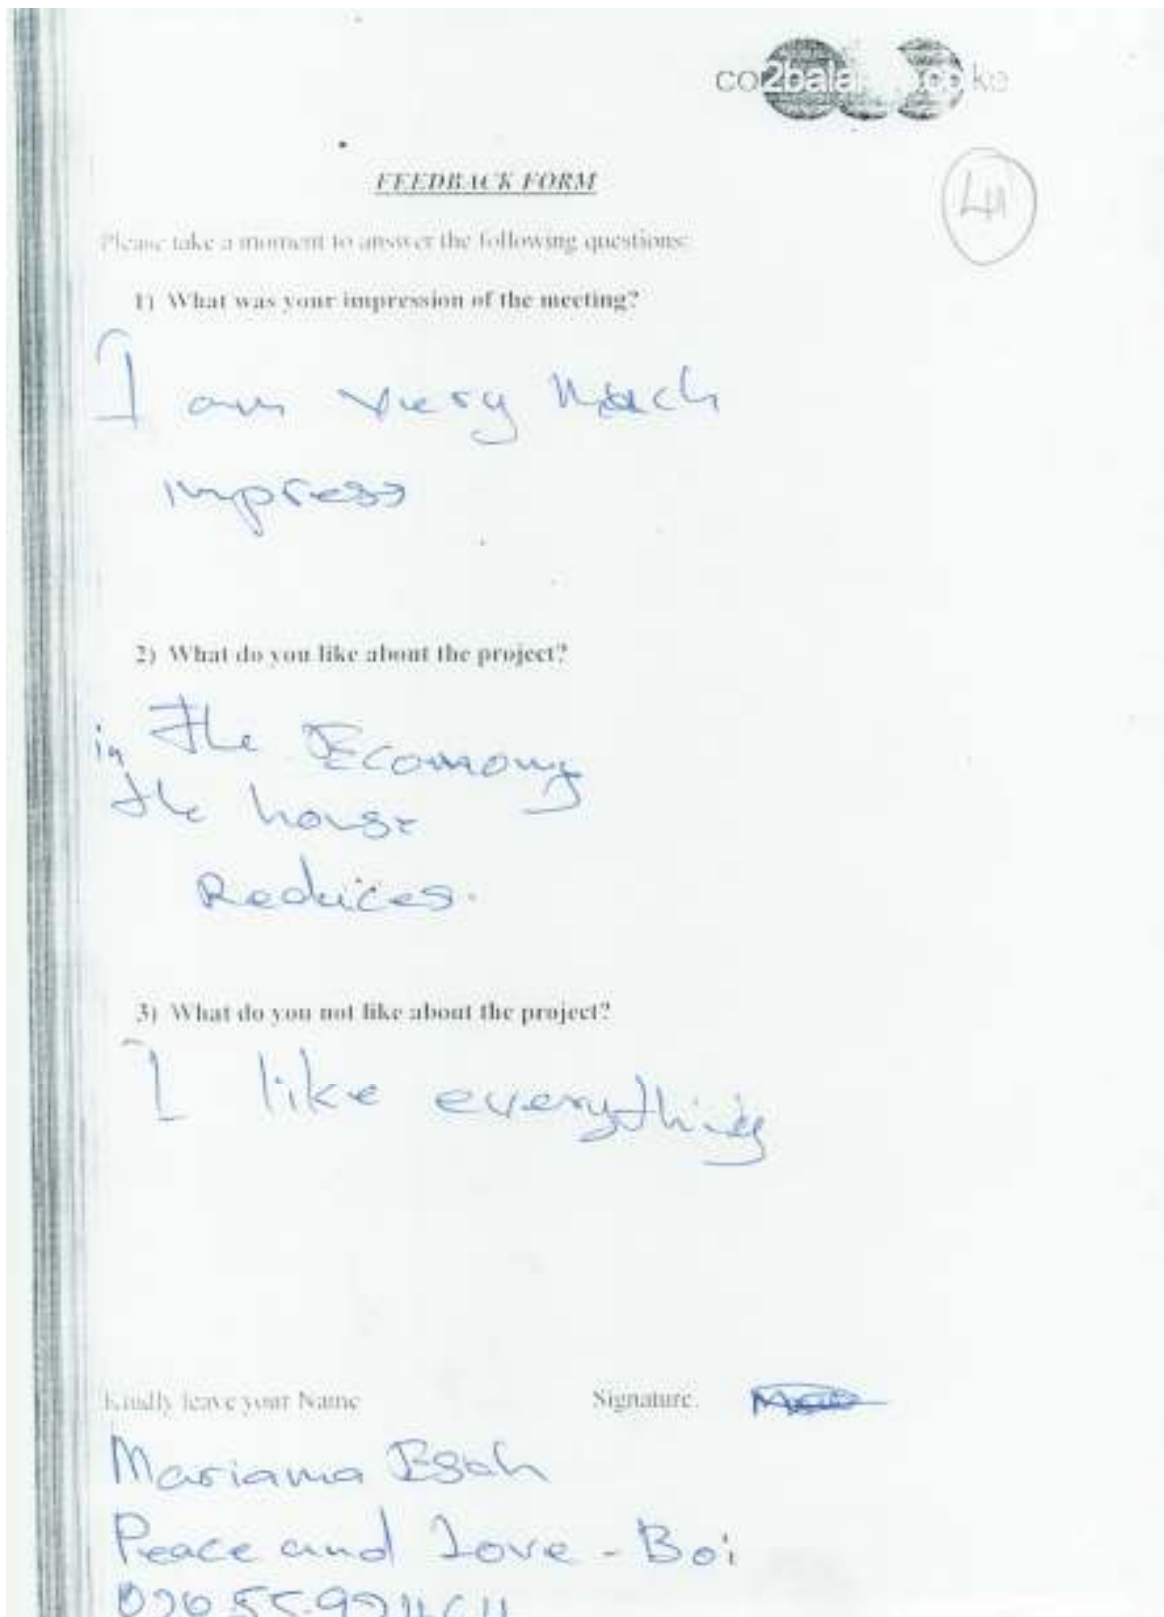 FEEDBACK FORM
Please take a moment to answer the following questions:
1) What was your impression of the meeting?
I am very much
impress
2) What do you like about the project?
in the Economy
the house
Reduces.
3) What do you not like about the project?
I like everything
Kindly leave your Name Signature.
Mariama
Peace and Love - Boi